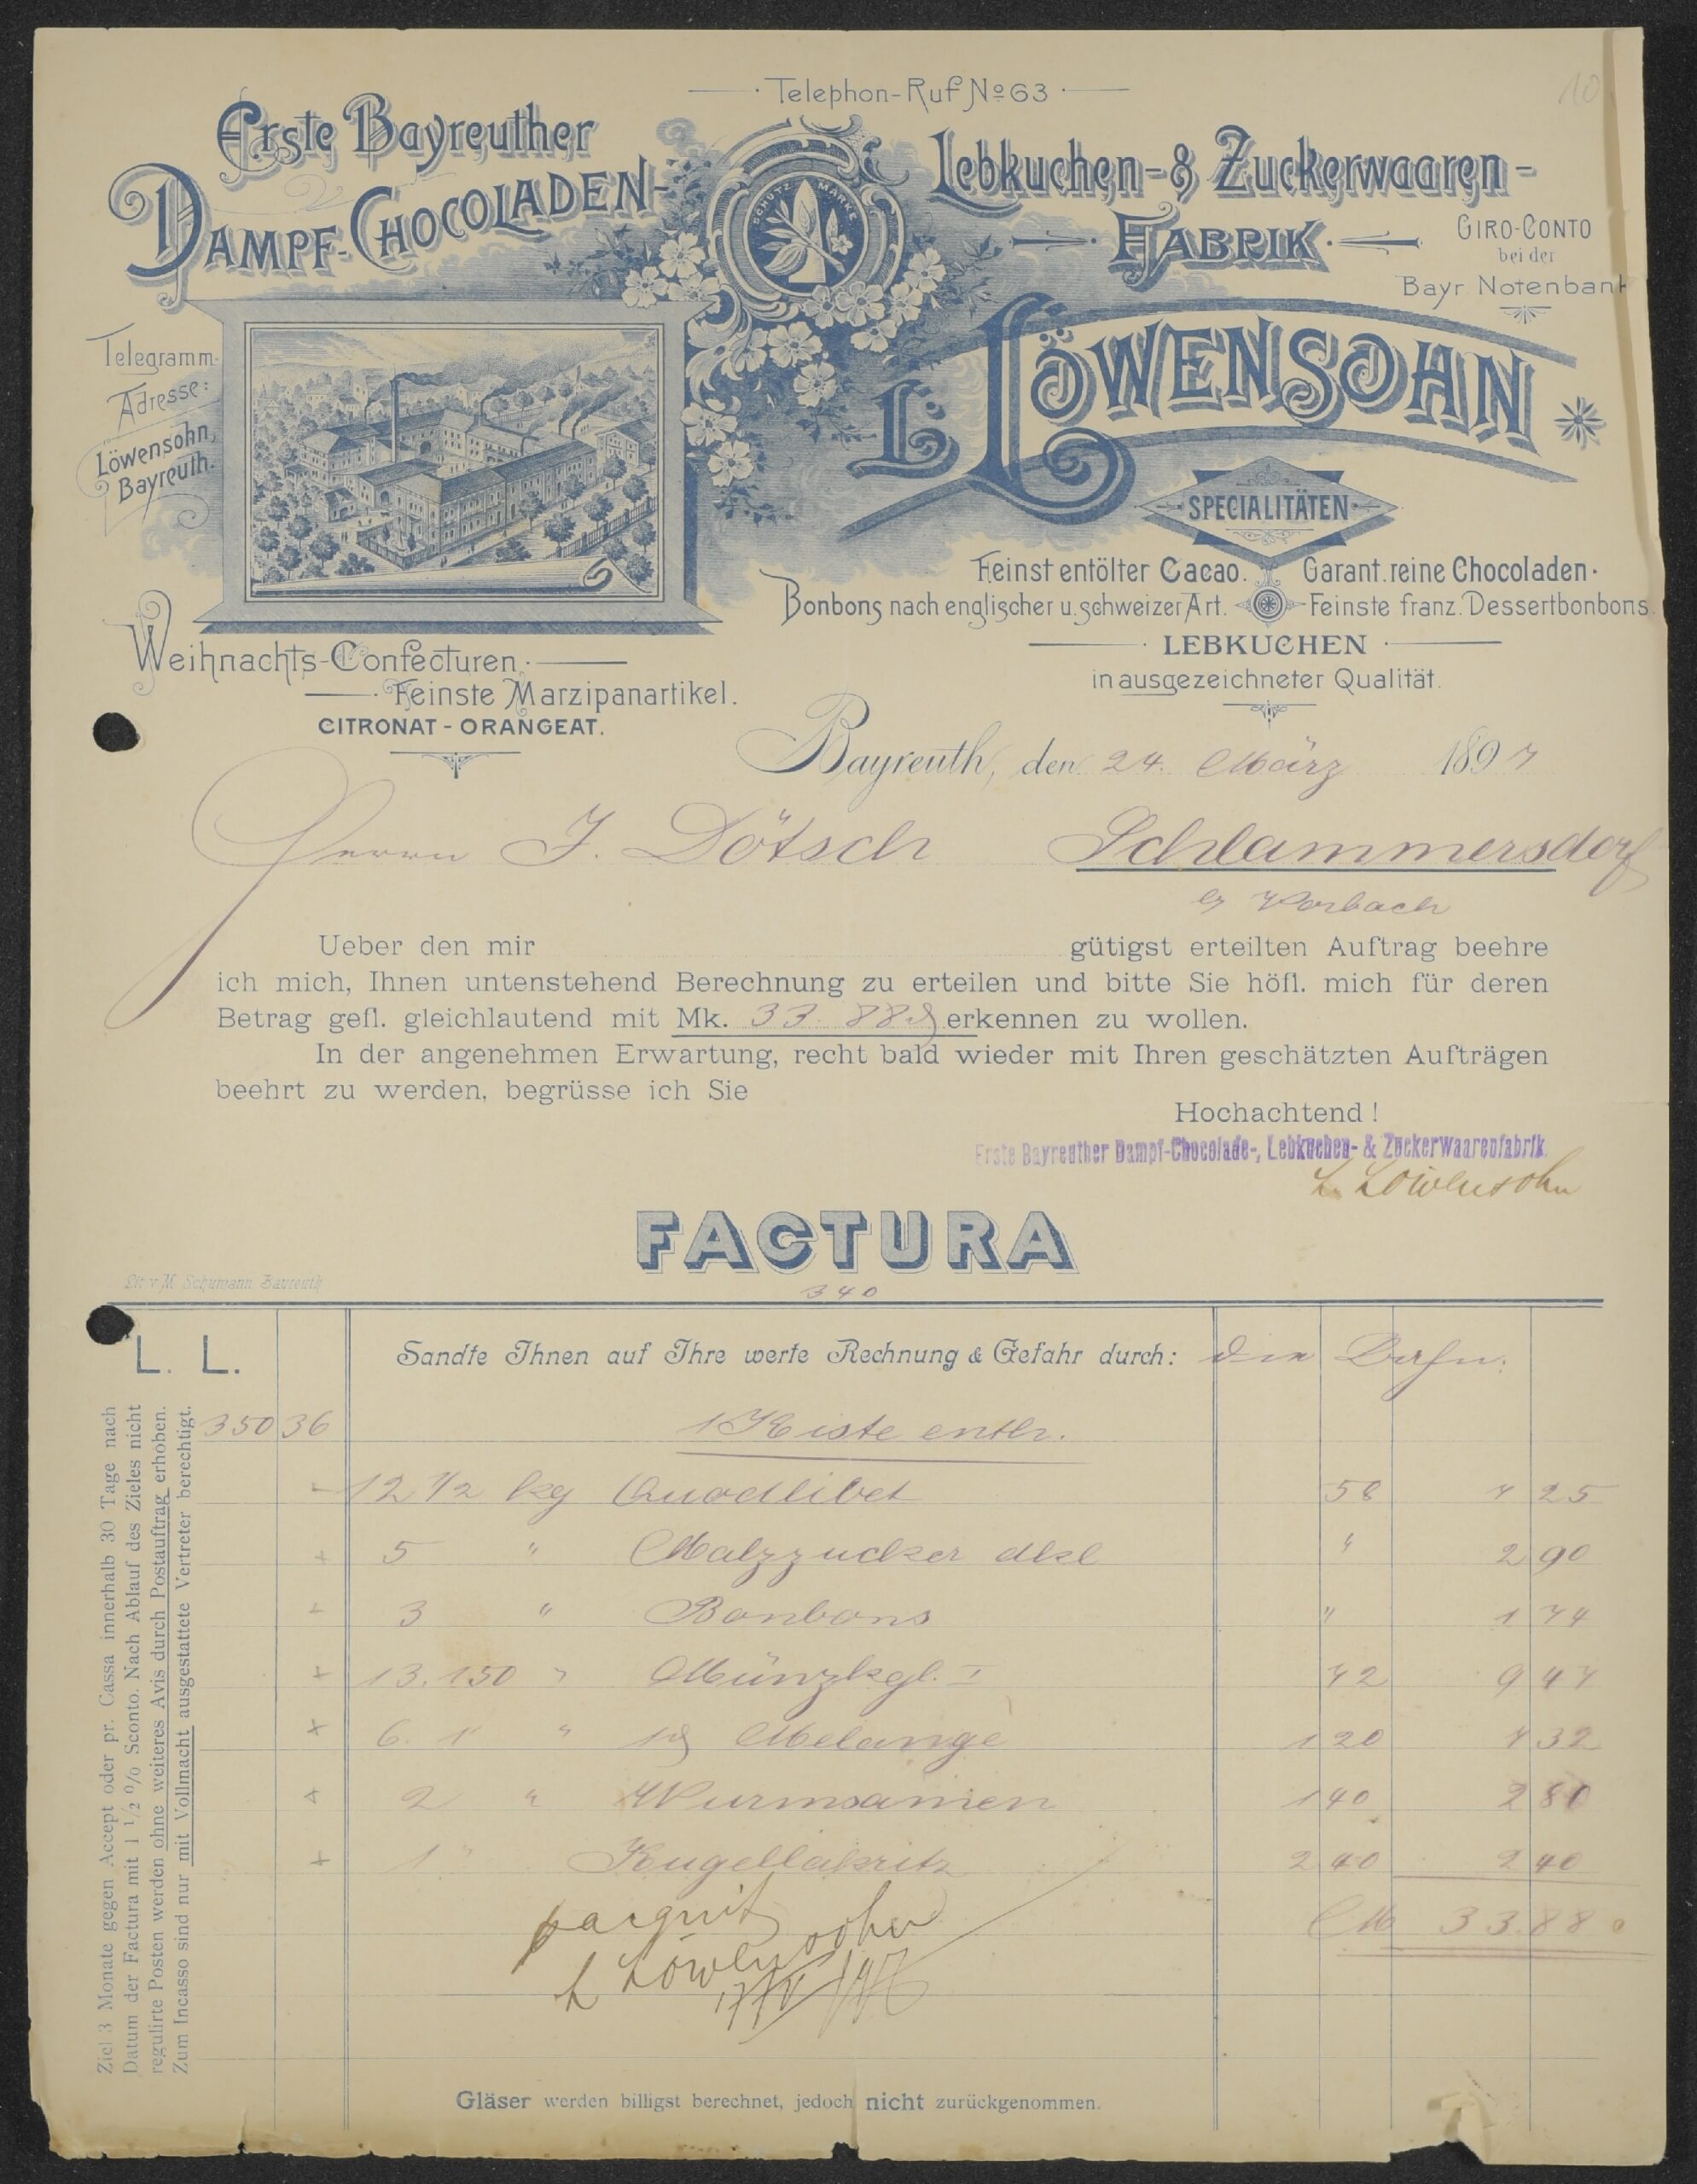 10
Telephon-Ruf No 63
Erste Bayreuther
Dampf-Chocoladen-
Lebkuchen- & Zuckerwaaren-
Fabrik
SCHUTZ MARKE
Giro-Conto
bei der
Bayr Notenbank
L. Löwensohn
Telegramm-
Adresse:
Löwensohn,
Bayreuth.
SPECIALITÄTEN
Feinst entölter Cacao. Garant. reine Chocoladen.
Bonbons nach englischer u. schweizer Art. Feinste franz. Dessertbonbons.
LEBKUCHEN
in ausgezeichneter Qualität.
Weihnachts-Confecturen.
Feinste Marzipanartikel.
CITRONAT - ORANGEAT.
Bayreuth, den 24. März 1897
Herrn J. Dötsch Schlammersdorf
b/ Vorbach
Ueber den mir gütigst erteilten Auftrag beehre
ich mich, Ihnen untenstehend Berechnung zu erteilen und bitte Sie höfl. mich für deren
Betrag gefl. gleichlautend mit Mk. 33.88 erkennen zu wollen.
In der angenehmen Erwartung, recht bald wieder mit Ihren geschätzten Aufträgen
beehrt zu werden, begrüsse ich Sie
Hochachtend!
Erste Bayreuther Dampf-Chocolade-, Lebkuchen- & Zuckerwaarenfabrik.
L. Löwensohn
FACTURA
340
Lit. v. M. Schumann Bayreuth
L. L. Sandte Ihnen auf Ihre werte Rechnung & Gefahr durch: die Bahn:
350 36 1 Kiste enth.
12 1/2 kg Quodlibet 58 7 25
5 " Malzzucker dkl " 2 90
3 " Bonbons " 1 74
13.150 " Münzkgl. I 72 9 47
6.1 " Melange 120 7 32
2 " Wurmsamen 140 2 80
1 " Kugellakritz 2 40 2 40
M 33.88
L Löwensohn
Ziel 3 Monate gegen Accept oder pr. Cassa innerhalb 30 Tage nach
Datum der Factura mit 1 1/2 % Sconto. Nach Ablauf des Zieles nicht
regulirte Posten werden ohne weiteres Avis durch Postauftrag erhoben.
Zum Incasso sind nur mit Vollmacht ausgestattete Vertreter berechtigt.
Gläser werden billigst berechnet, jedoch nicht zurückgenommen.